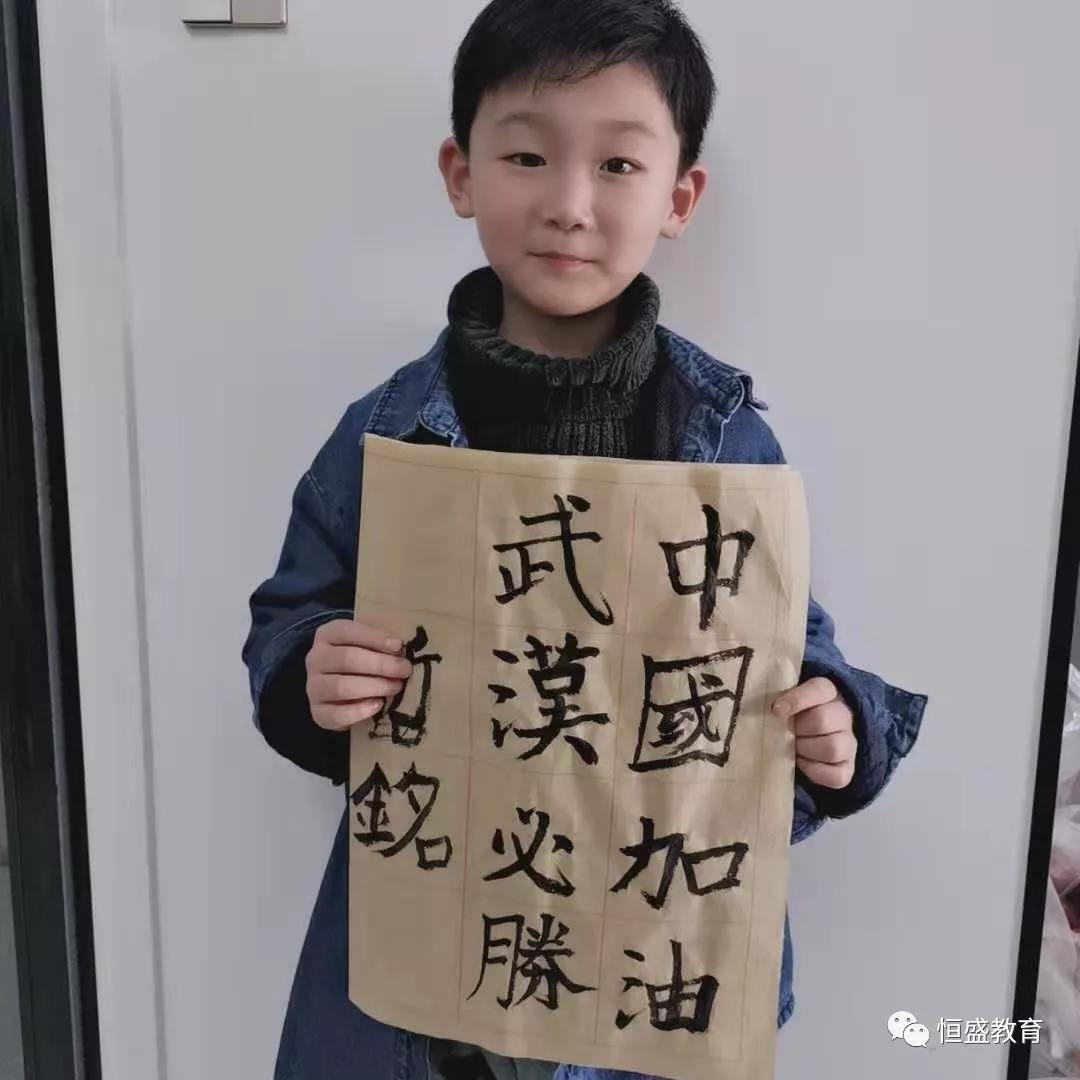 中國加油
武漢必勝
哲銘
恒盛教育